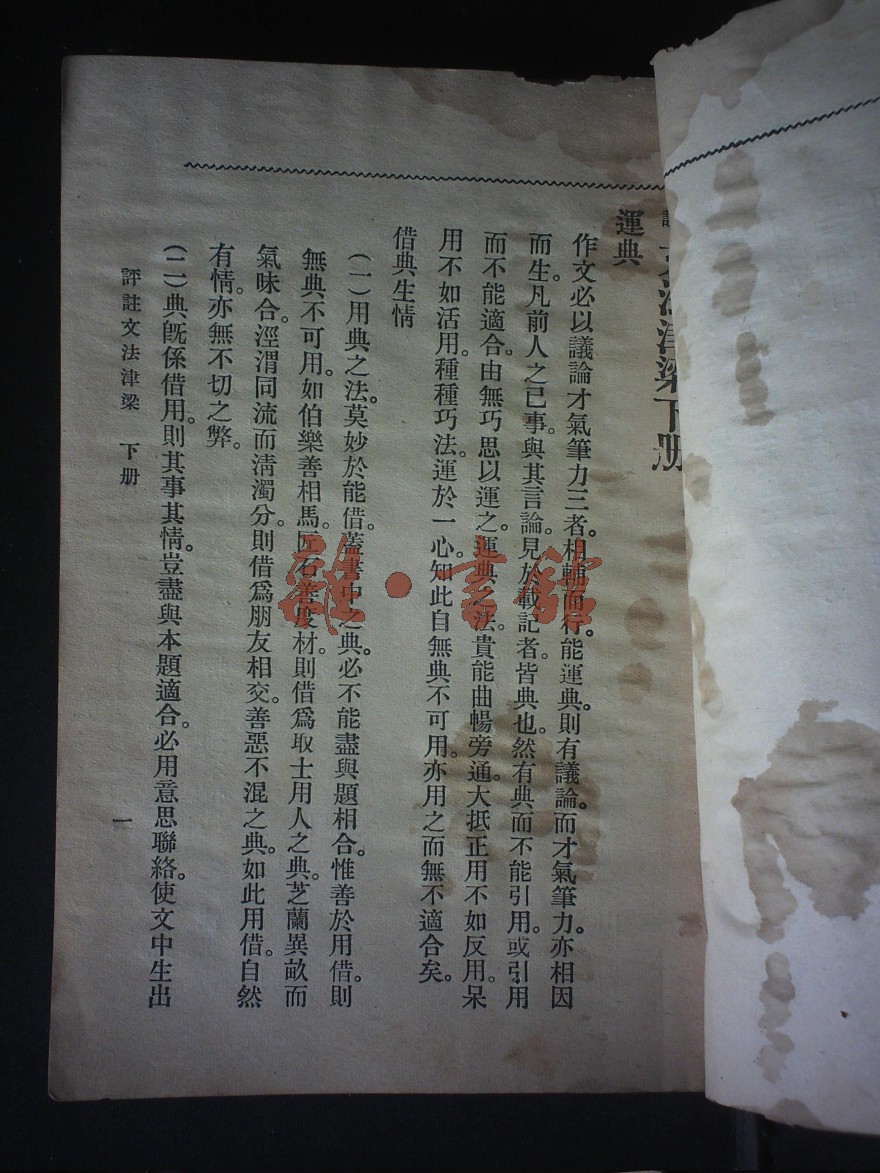 文法津梁下册
運典
作文必以議論才氣筆力三者。相輔而行。能運典。則有議論。而才氣筆力。亦相因
而生。凡前人之已事。與其言論。見於載記者。皆典也。然有典而不能引用。或引用
而不能適合。由無巧思以運之。運典之法。貴能曲暢旁通。大抵正用不如反用。呆
用不如活用。種種巧法。運於一心。知此自無典不可用。亦用之而無不適合矣。
借典生情
(一)用典之法。莫妙於能借。蓋書中之典。必不能盡與題相合。惟善於用借。則
無典不可用。如伯樂善相馬。匠石善度材。則借爲取士用人之典。芝蘭異畝而
氣味合。涇渭同流而淸濁分。則借爲朋友相交。善惡不混之典。如此用借。自然
有情。亦無不切之弊。
(二)典旣係借用。則其事其情。豈盡與本題適合。必用意思聯絡。使文中生出
評註文法津梁 下册 一
雜·書館